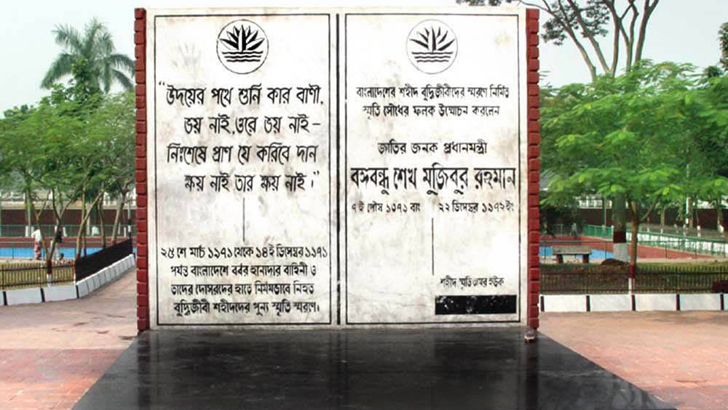 "উদয়ের পথে শুনি কার বাণী,
ভয় নাই, ওরে ভয় নাই–
নিঃশেষে প্রাণ যে করিবে দান
ক্ষয় নাই তার ক্ষয় নাই।"
২৫ শে মার্চ ১৯৭১ থেকে ১৪ই ডিসেম্বর ১৯৭১
পর্যন্ত বাংলাদেশে বর্বর হানাদার বাহিনী ও
তাদের দোসরদের হাতে নির্মমভাবে নিহত
বুদ্ধিজীবী শহীদদের পূন্য স্মৃতি স্মরণে।
বাংলাদেশের শহীদ বুদ্ধিজীবীদের স্মরণে নির্মিত
স্মৃতি সৌধের ফলক উম্মোচন করলেন
জাতির জনক প্রধানমন্ত্রী
বঙ্গবন্ধু শেখ মুজিবুর রহমান
৭ই পৌষ ১৩৭৯ বাং ২২ ডিসেম্বর ১৯৭২ইং
শহীদ স্মৃতি অমর হউক